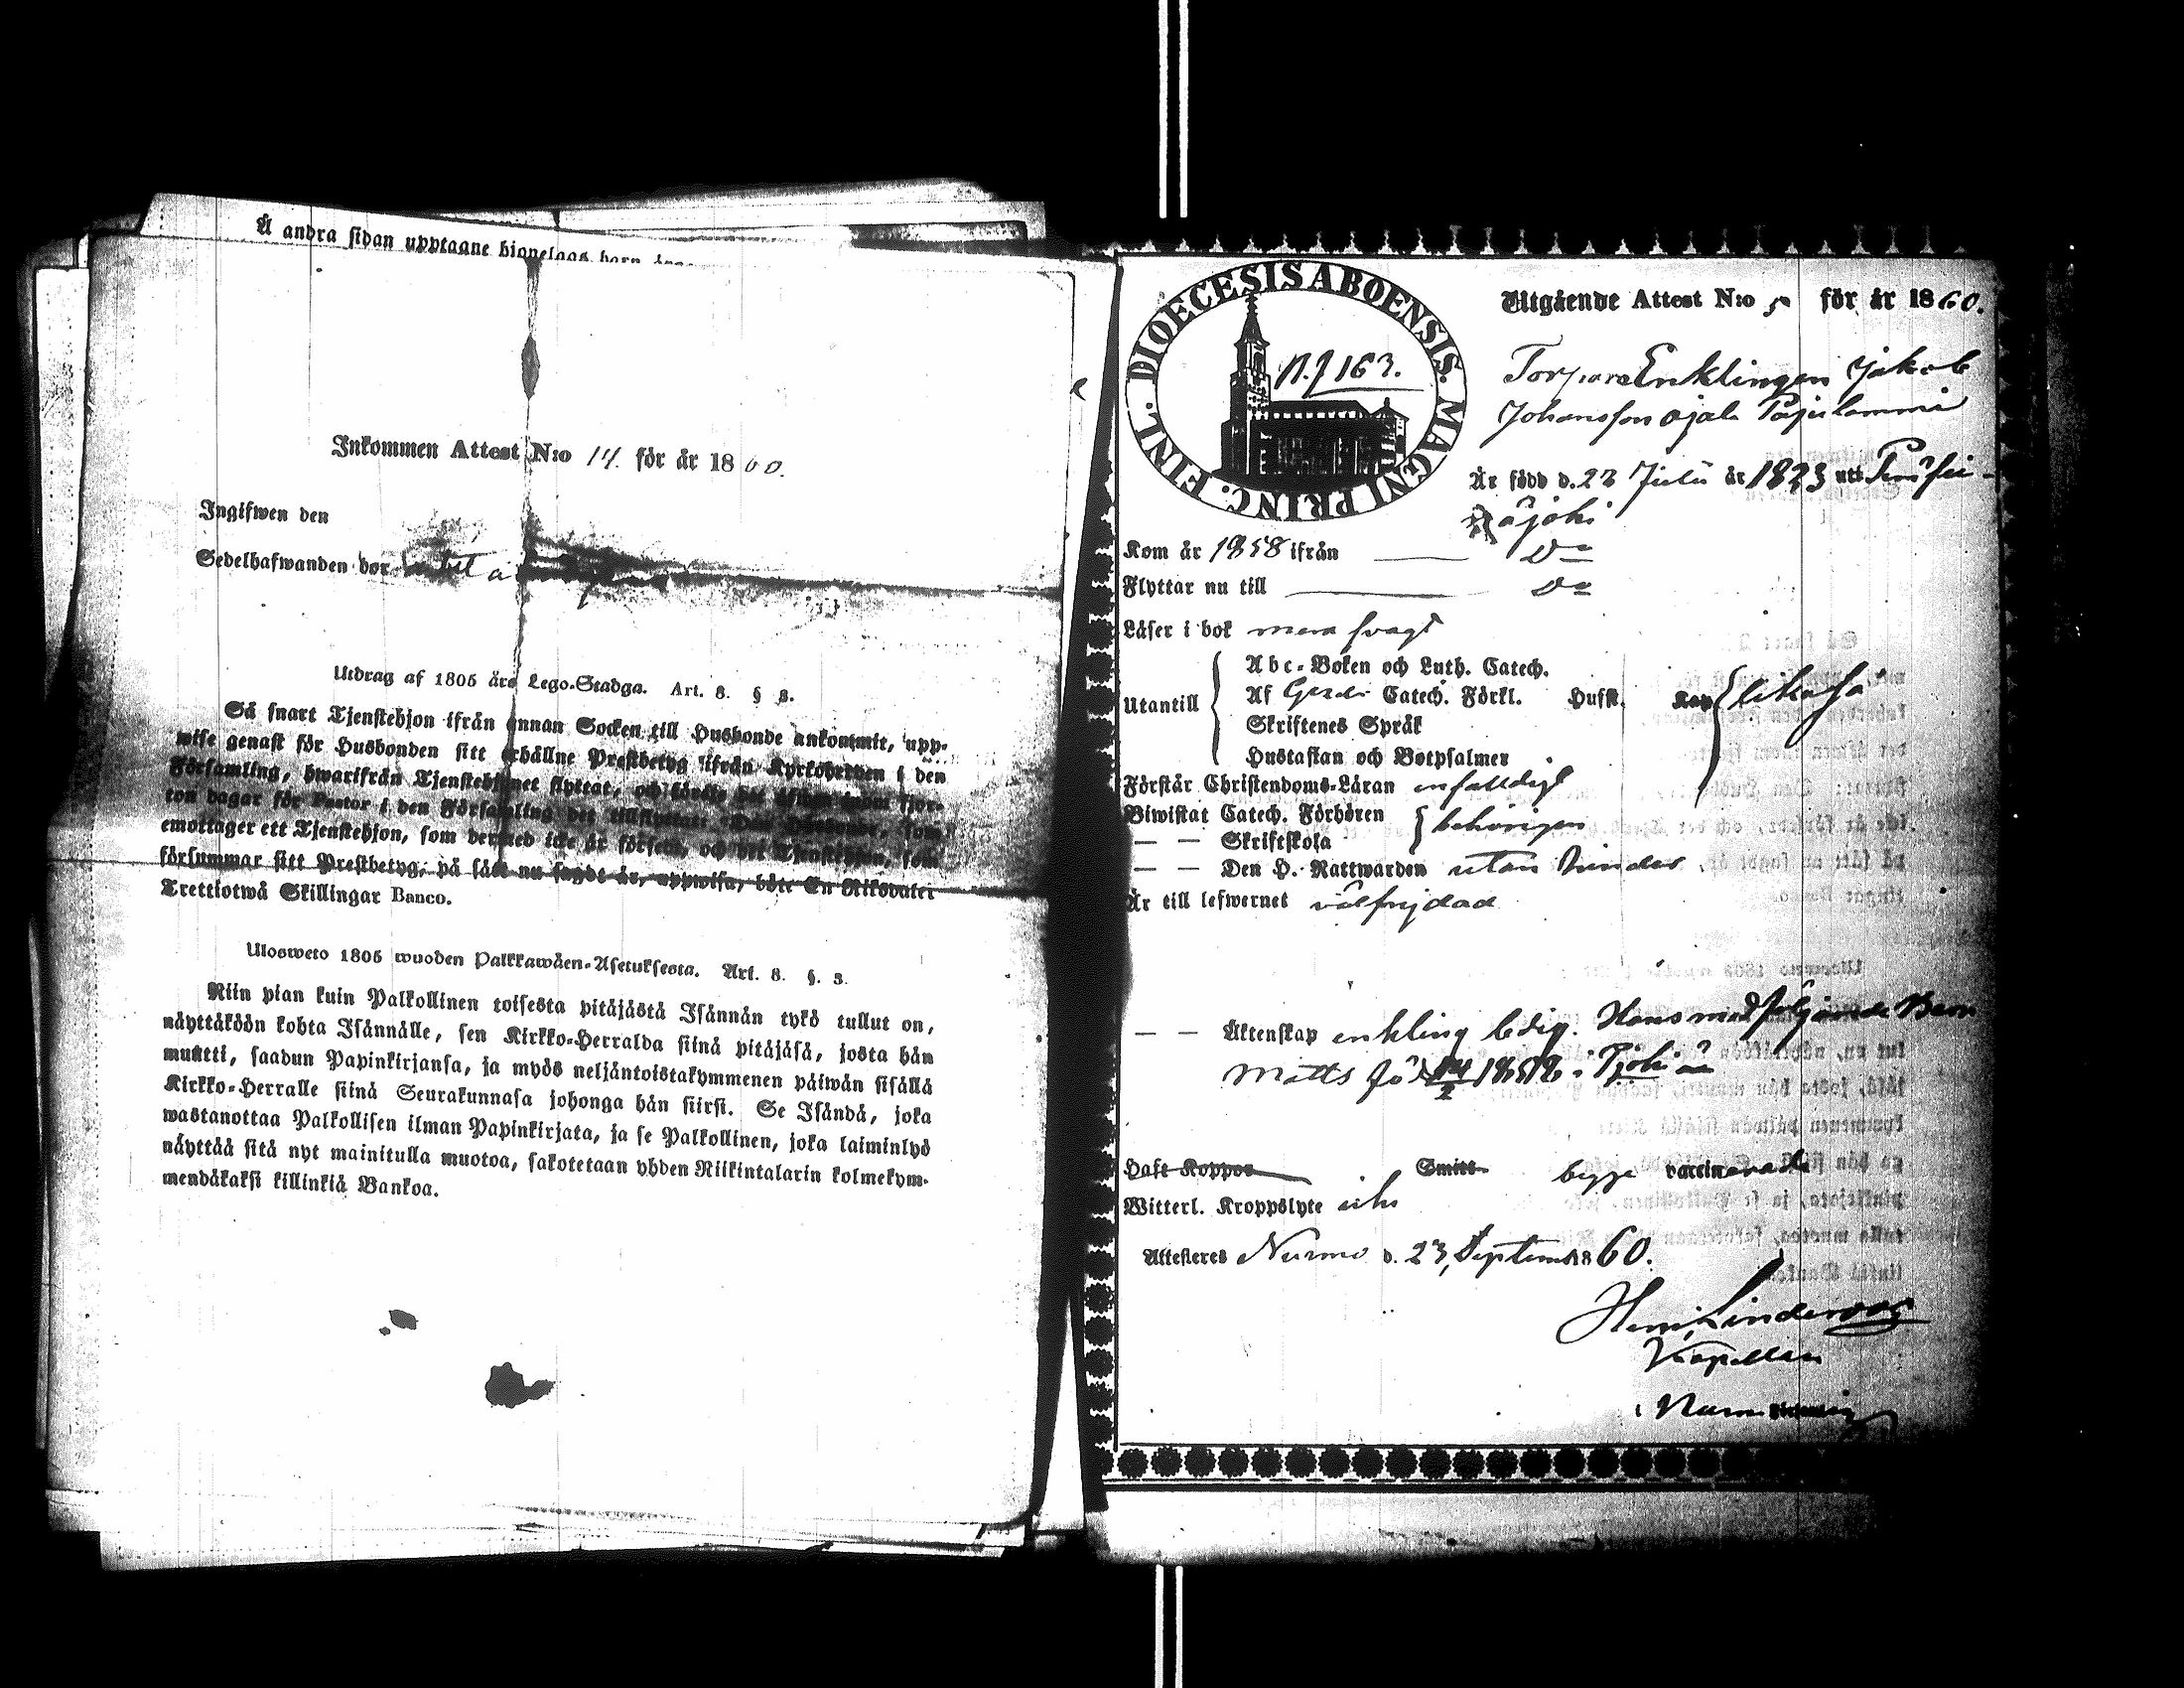 Å andra sidan upptagne hionelags barn
Inkommen Attest N:o 14. för år 1860.
Ingifwen den
Sedelhafwanden bor
Utdrag af 1805 års Lego-Stadga. Art. 8. § 3.
Så snart Tjenstehjon ifrån annan Socken till Husbonde ankommit, upp-
wise genast för Husbonden sitt erhållne Prestbetyg ifrån Kyrkoherden i den
Församling, hwarifrån Tjenstehjonet flyttat, och
ton dagar för Pastor i den Församling det tillflyttat. Den Husbonde, som
emottager ett Tjenstehjon, som dermed icke är försedt, och det Tjenstehjon, som
försummar sitt Prestbetyg, på sätt nu sagdt är, uppwisa, böte En Riksdaler
Trettiotwå Skillingar Banco.
Ulosweto 1805 wuoden Palkkawäen-Asetuksesta. Art. 8. §. 3.
Niin pian kuin Palkollinen toisesta pitäjästä Isännän tykö tullut on,
näyttäköön kohta Isännälle, sen Kirkko-Herralda siinä pitäjäsä, josta hän
muutti, saadun Papinkirjansa, ja myös neljäntoistakymmenen päiwän sisällä
Kirkko-Herralle siinä Seurakunnasa johonga hän siirsi. Se Isändä, joka
wastanottaa Palkollisen ilman Papinkirjata, ja se Palkollinen, joka laiminlyö
näyttää sitä nyt mainitulla muotoa, sakotetaan yhden Riikintalarin kolmekym-
mendäkaksi killinkiä Bankoa.
DIOECESIS ABOENSIS. MAGNI PRINC. FINL.
163.
Utgående Attest N:o 5 för år 1860.
Torpare Enklingen Jakob
Johansson Ojala Pajulammi
Är född d. 23 Julii år 1823 uti
Kom år 1858 ifrån D:o
Flyttar nu till D:o
Läser i bok mera svagt
Utantill
Abc-Boken och Luth. Catech.
Af Catech. Förkl. Hufst. Kap
Skriftenes Språk
Hustaflan och Botpsalmer
likaså
Förstår Christendoms-Läran enfalldigt
Biwistat Catech. Förhören
— — Skriftskola
behörigen
— — Den H. Nattwarden utan hinder
Är till lefwernet välfrejdad
— — Äktenskap enkling ledig. Hans med följande Barn
Matts
Haft Koppor Smitt begge vaccinerade
Witterl. Kroppslyte
Attesteres Nurmo d. 23 September 1860.
Kapellan